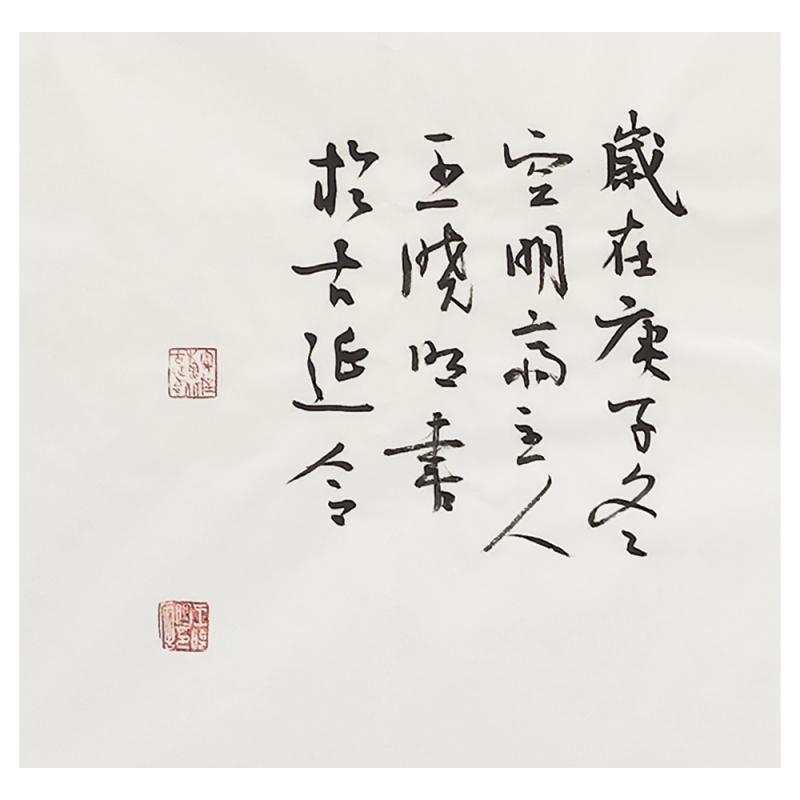 歲在庚子冬
空明齋主人
王曉明書
於古延令